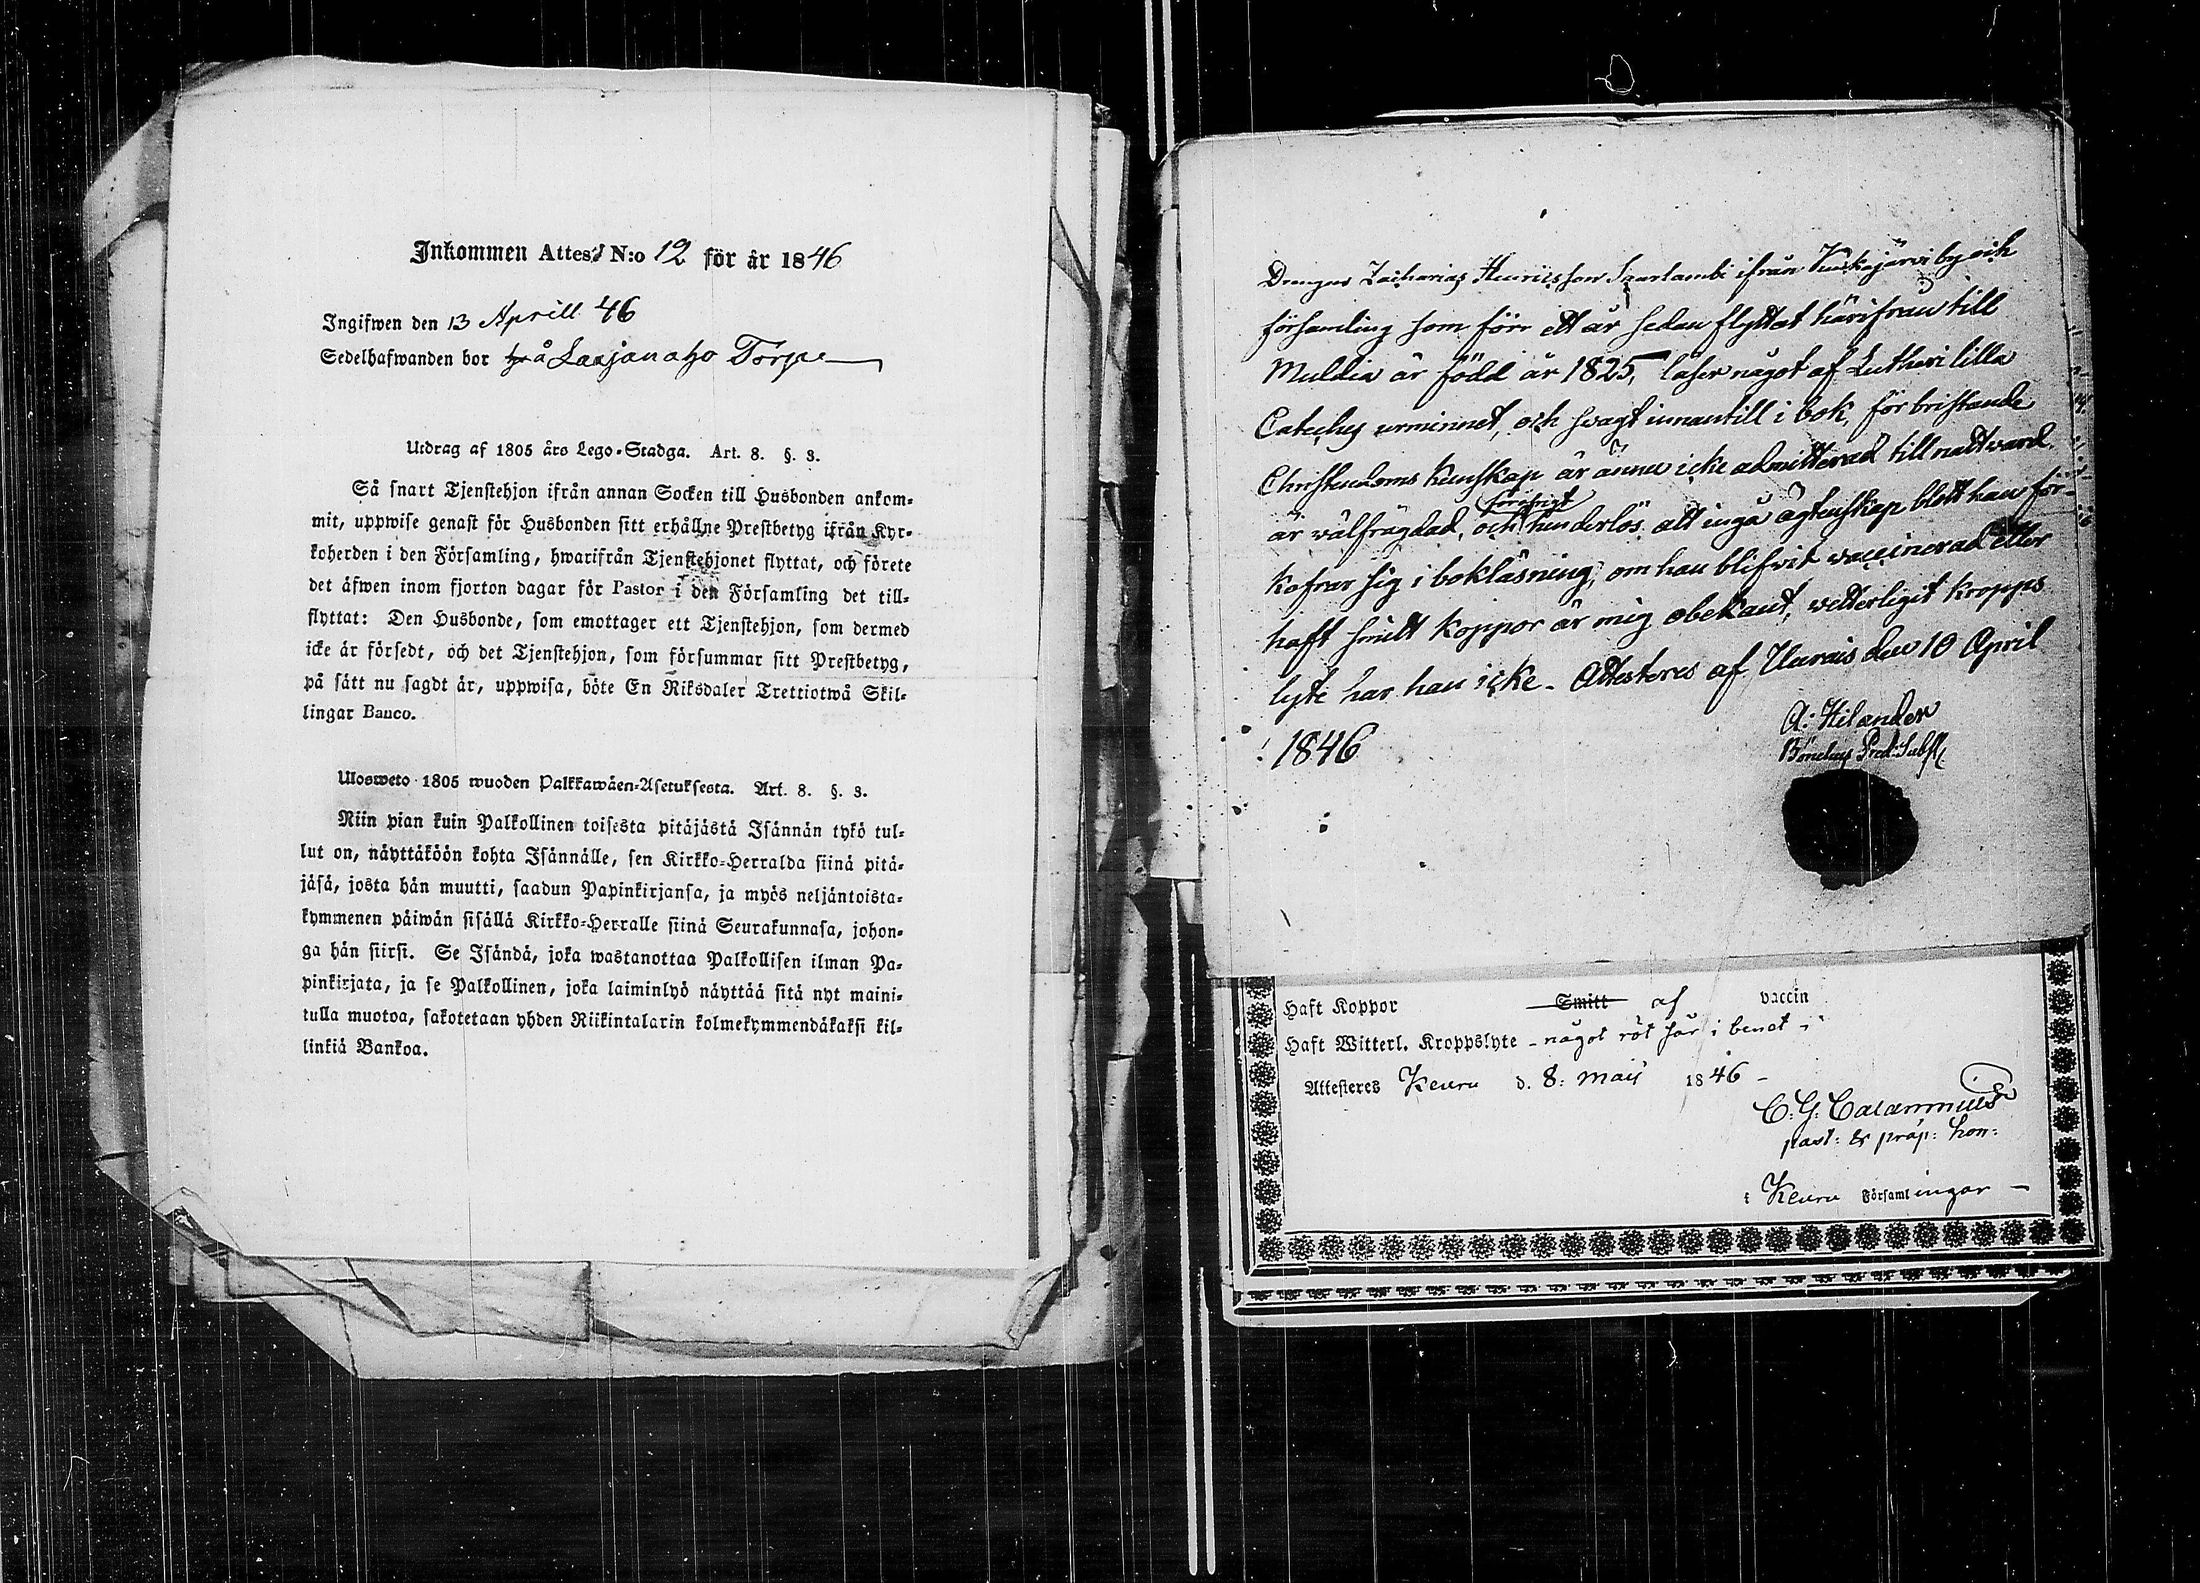 Inkommen Attest N:o 12 för år 1846
Ingifwen den 13 Aprill 46
Sedelhafwanden bor på Laajanaho Torpe
Utdrag af 1805 års Lego-Stadga. Art. 8. §. 3.
Så snart Tjenstehjon ifrån annan Socken till Husbonden ankom-
mit, uppwise genast för Husbonden sitt erhållne Prestbetyg ifrån Kyr-
koherden i den Församling, hwarifrån Tjenstehjonet flyttat, och förete
det äfwen inom fjorton dagar för Pastor i den Församling det till-
flyttat: Den Husbonde, som emottager ett Tjenstehjon, som dermed
icke är försedt, och det Tjenstehjon, som försummar sitt Prestbetyg,
på sätt nu sagdt är, uppwisa, böte En Riksdaler Trettiotwå Skil-
lingar Banco.
Ulosweto 1805 wuoden Palkkawäen-Asetuksesta. Art. 8. §. 3.
Niin pian kuin Palkollinen toisesta pitäjästä Isännän tykö tul-
lut on, näyttäköön kohta Isännälle, sen Kirkko-Herralda siinä pitä-
jäsä, josta hän muutti, saadun Papinkirjansa, ja myös neljäntoista-
kymmenen päiwän sisällä Kirkko-Herralle siinä Seurakunnasa, johon-
ga hän siirsi. Se Isändä, joka wastanottaa Palkollisen ilman Pa-
pinkirjata, ja se Palkollinen, joka laiminlyö näyttää sitä nyt maini-
tulla muotoa, sakotetaan yhden Riikintalarin kolmekymmendäkaksi kil-
linkiä Bankoa.
Drengen Zacharias Henricsson Saarlambi ifrån Kuukajärvi by och
församling som förr ett år sedan flyttat härifrån till
Muldia är född år 1825, läser något af Lutheri lilla
Cateches urminnet, och swagt innantill i bok, för bristande
Christendoms kunskap är ännu icke admitterad till nattward.
är wälfrägdad, och hinderlös att ingå ägtenskap blott han för-
kofrar sig i bokläsning, om han blifvit vaccinerad eller
haft smitt koppor är mig obekant, vetterligit kropps
lyte har han icke. Attesteres af Uurais den 10 April
1846
A: Hilander
Pred: Subst
Haft Koppor Smitt af vaccin
Haft Witterl. Kroppslyte - något röt sår i benet -
Attesteres Keuru d. 8: maij 1846 -
C. G. Calamnius
past: & präp: hon:
i Keuru Församlingar -